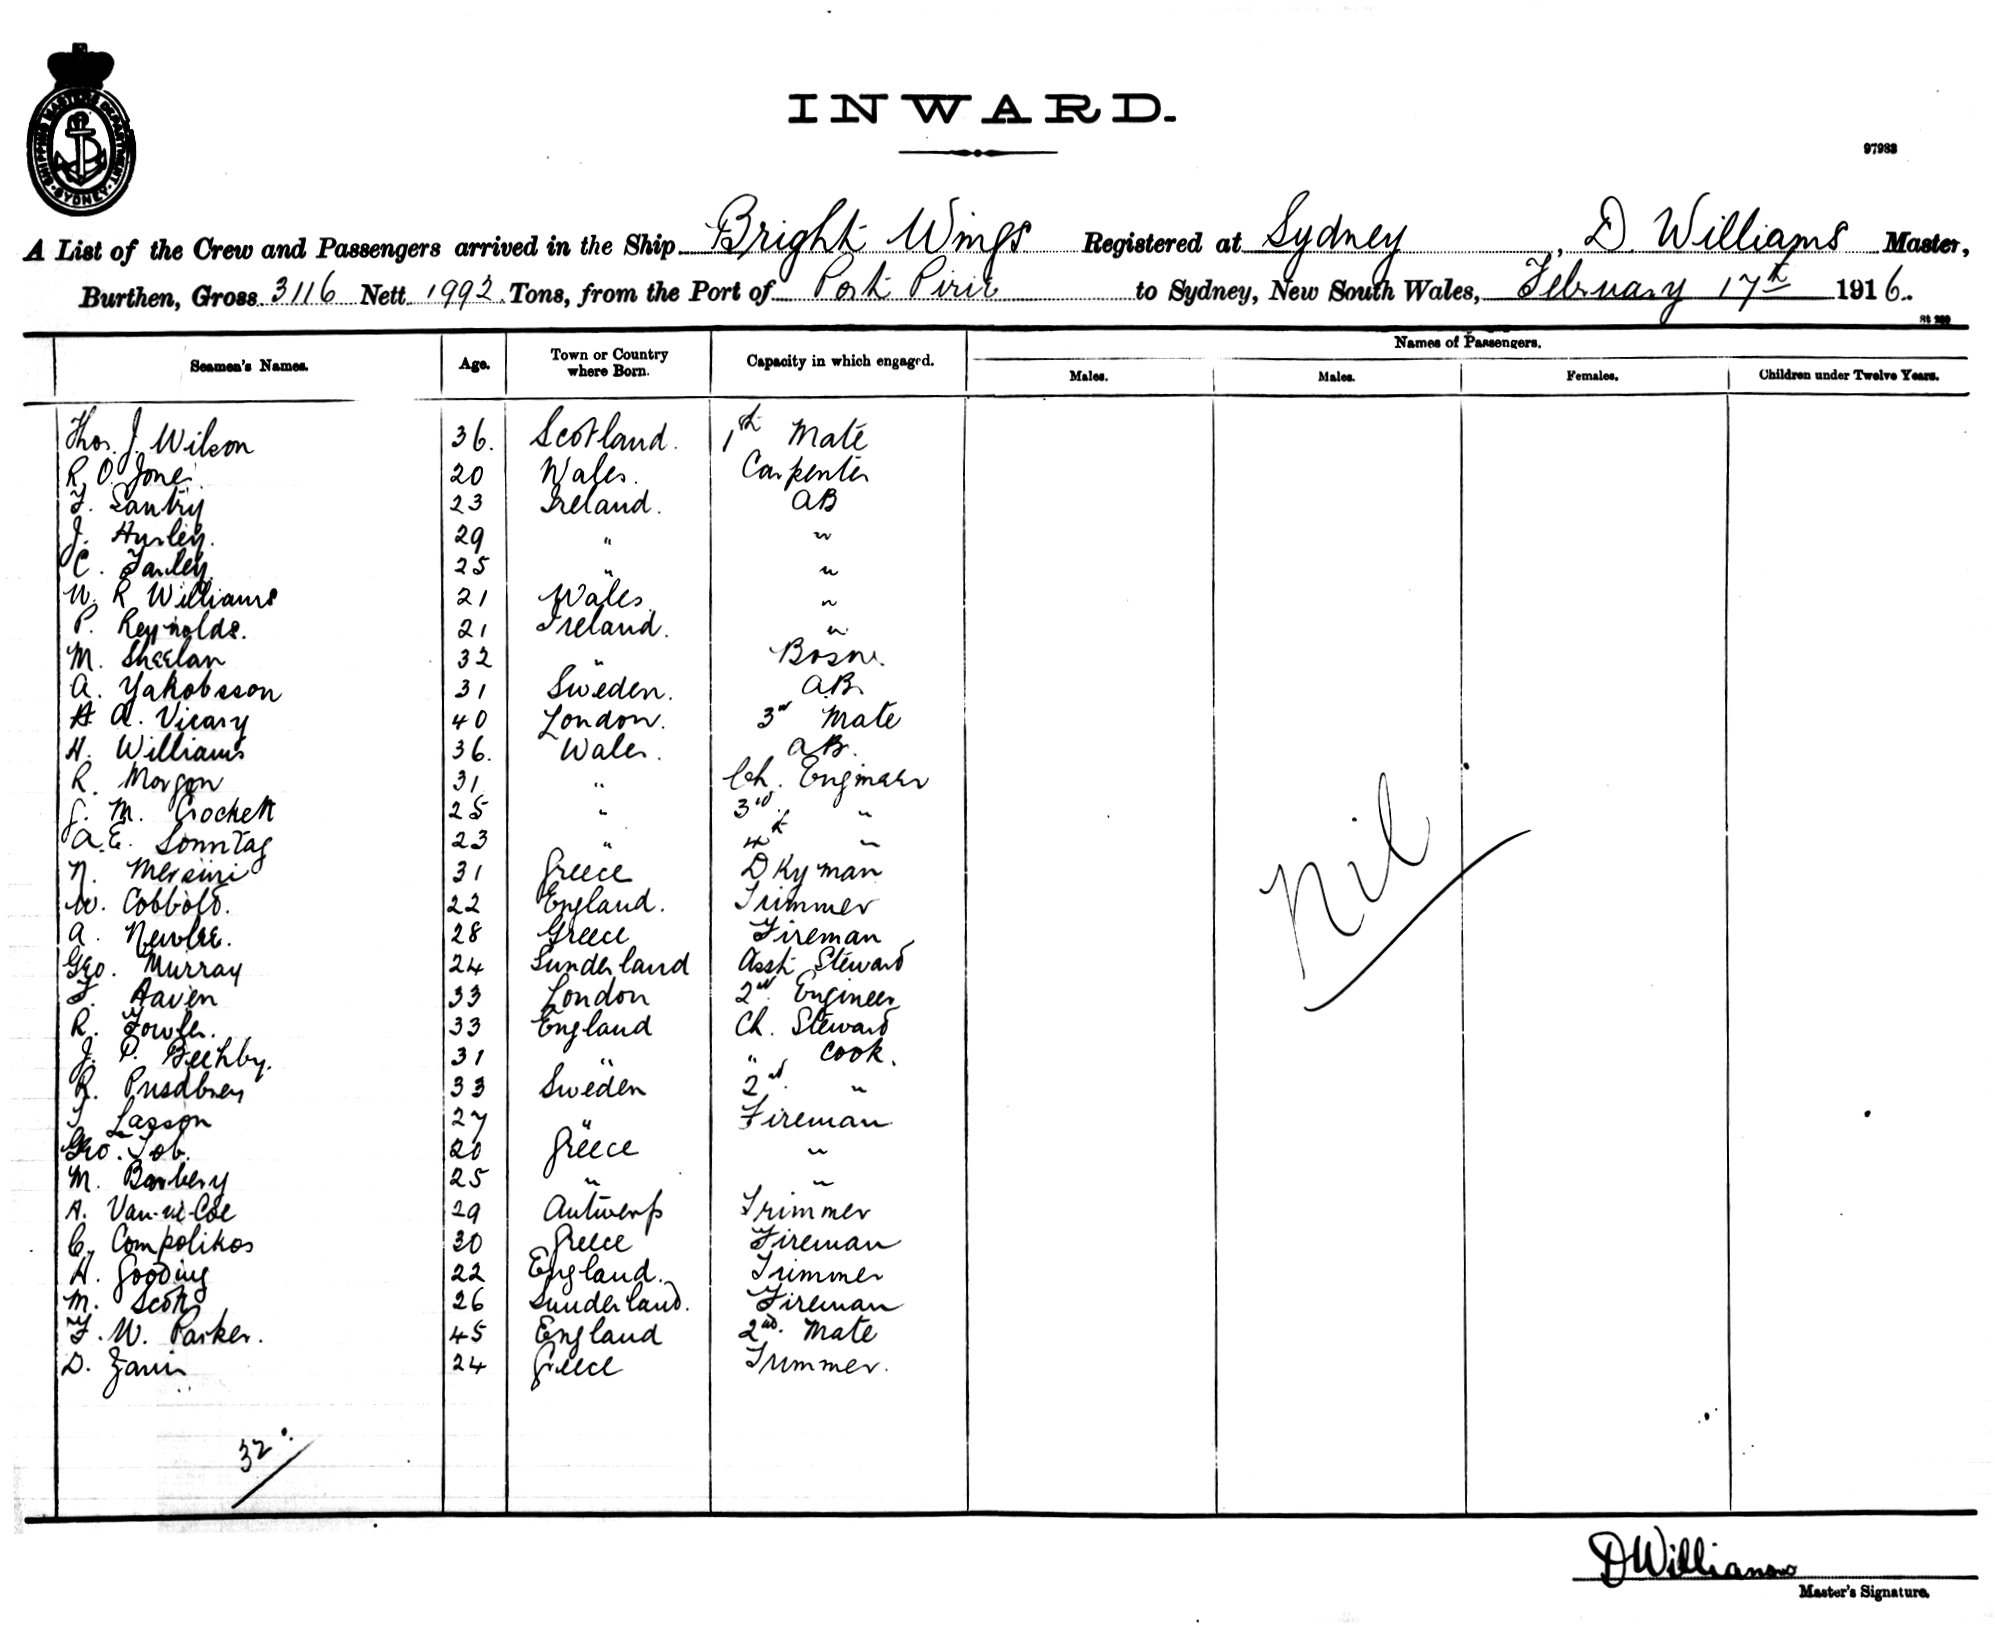 SHIPPING MASTERS DEPARTMENT · SYDNEY ·
INWARD.
97983
A List of the Crew and Passengers arrived in the Ship Bright Wings Registered at Sydney, D. Williams Master,
Burthen, Gross 3116 Nett 1992 Tons, from the Port of Port Pirie to Sydney, New South Wales, February 17th 1916.
Seamen's Names. Age. Town or Country where Born. Capacity in which engaged. Names of Passengers.
Males. Males. Females. Children under Twelve Years.
Thos. J. Wilson 36. Scotland. 1st Mate
R. O. Jones 20 Wales. Carpenter
23 Ireland. AB
J. Hurley. 29 " "
C. 25 " "
W. R Williams 21 Wales "
P. Reynolds. 21 Ireland. "
M. Sheelan 32 " Bosn.
A. Yakobsson 31 Sweden. AB.
A. Vicary 40 London. 3rd Mate
H. Williams 36. Wales. AB.
R. Morgan 31 " Ch. Engineer
J. M. Crockett 25 " 3rd "
A. E. Sonntag 23 " 4th "
N. Mersini 31 Greece Dkyman
W. Cobbold. 22 England. Trimmer
A. 28 Greece Fireman
Geo. Murray 24 Sunderland Asst Steward
33 London 2nd Engineer
R. Fowler. 33 England Ch. Steward
J. P. 31 " " Cook.
R. 33 Sweden 2nd "
Lasson 27 " Fireman
Geo. 20 Greece "
M. 25 " "
A. 29 Antwerp Trimmer
C. Compolikos 30 Greece Fireman
H. Gooding 22 England. Trimmer
M. Scott 26 Sunderland. Fireman
F. W. Parker. 45 England 2nd Mate
D. 24 Greece Trimmer.
Nil
32
D Williams
Master's Signature.